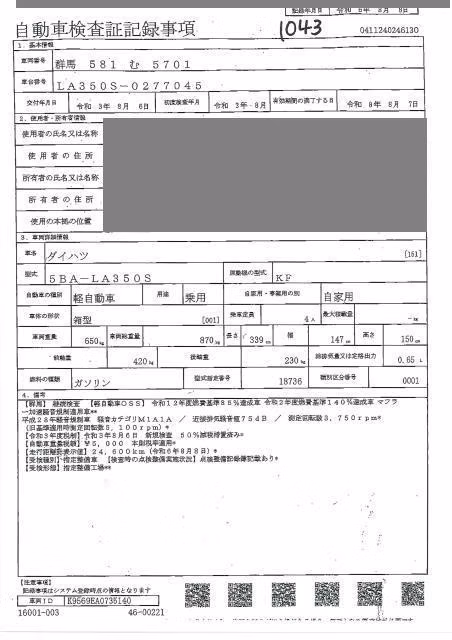 自動車検査証記録事項
1043
0411240246130
1. 基本情報
車両番号 群馬 581 む 5701
車台番号 LA350S-0277045
交付年月日 令和 3年 8月 6日 初度検査年月 令和 3年 8月 有効期間の満了する日 令和 8年 8月 7日
2. 使用者・所有者情報
使用者の氏名又は名称
使用者の住所
所有者の氏名又は名称
所有者の住所
使用の本拠の位置
3. 車両詳細情報
車名 ダイハツ [151]
型式 5BA-LA350S 原動機の型式 KF
自動車の種別 軽自動車 用途 乗用 自家用・事業用の別 自家用
車体の形状 箱型 [001] 乗車定員 4人 最大積載量 -kg
車両重量 650kg 車両総重量 870kg 長さ 339cm 幅 147cm 高さ 150cm
前軸重 420kg 後軸重 230kg 総排気量又は定格出力 0.65 L
燃料の種類 ガソリン 型式指定番号 18736 類別区分番号 0001
4. 備考
【群馬】 継続検査 【軽自動車OSS】 令和12年度燃費基準85%達成車 令和2年度燃費基準140%達成車 マフラ
ー加速騒音規制適用車**
平成28年騒音規制車 騒音カテゴリM1A1A / 近接排気騒音値75dB / 測定回転数3,750rpm*
(旧基準適用時測定回転数5,100rpm)*
【令和3年度税制】令和3年8月6日 新規検査 50%減税措置済み*
【自動車重量税額】¥5,000 本則税率適用*
【走行距離計表示値】24,600km(令和6年8月8日)*
【受検種別】指定整備車 【検査時の点検整備実施状況】点検整備記録簿記載あり*
【受検形態】指定整備工場**
【注意事項】
記録事項はシステム登録時点の情報となります
車両ID E9569EA0735140
16001-003 46-00221